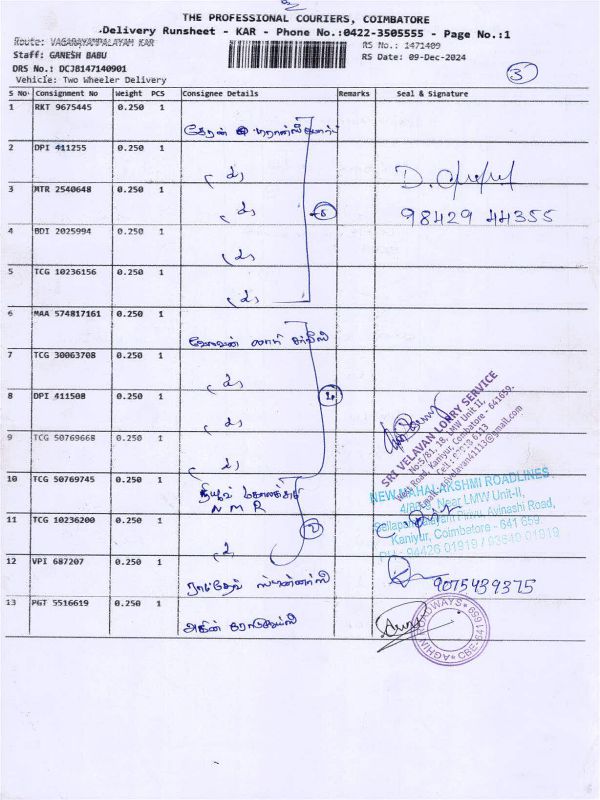 THE PROFESSIONAL COURIERS, COIMBATORE
Delivery Runsheet - KAR - Phone No.:0422-3505555 - Page No.:1
Route: VAGARAYAMPALAYAM KAR
RS No.: 1471409
Staff: GANESH BABU
RS Date: 09-Dec-2024
DRS No.: DCJ8147140901
Vehicle: Two Wheeler Delivery
3
S No Consignment No Weight PCS Consignee Details Remarks Seal & Signature
1 RKT 9675445 0.250 1
2 DPI 411255 0.250 1
3 MTR 2540648 0.250 1
98429 44355
4 BDI 2025994 0.250 1
5 TCG 10236156 0.250 1
6 MAA 574817161 0.250 1
7 TCG 30063708 0.250 1
8 DPI 411508 0.250 1
9 TCG 50769668 0.250 1
SRI VELAVAN LORRY SERVICE
No:5/81, 18, LMW Unit II,
Road, Kaniyur, Coimbatore - 641659.
10 TCG 50769745 0.250 1
N M R
NEW MAHALAKSHMI ROADLINES
Near LMW Unit-II,
Pirivu, Avinashi Road,
Kaniyur, Coimbatore - 641 659.
PH : 94426 01919 / 93640 01919
11 TCG 10236200 0.250 1
12 VPI 687207 0.250 1
9075439375
13 PGT 5516619 0.250 1
ROADWAYS
CBE-641 659